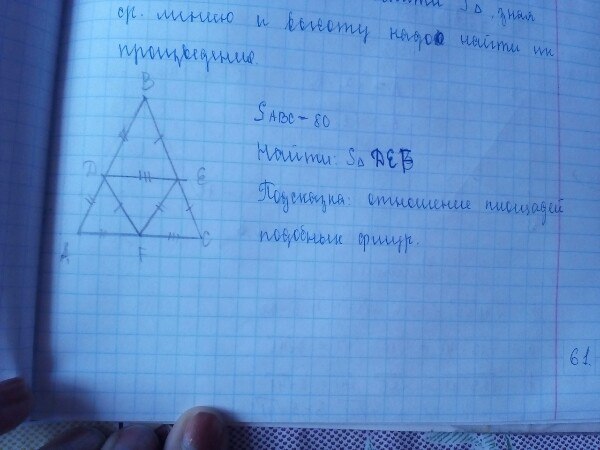 SΔ, зная
ср. линию и высоту надо найти их
произведение.
B
SABC = 80
Найти: SΔ DEF
D
E
Подсказка: отношение площадей
подобных фигур.
A
F
C
61.